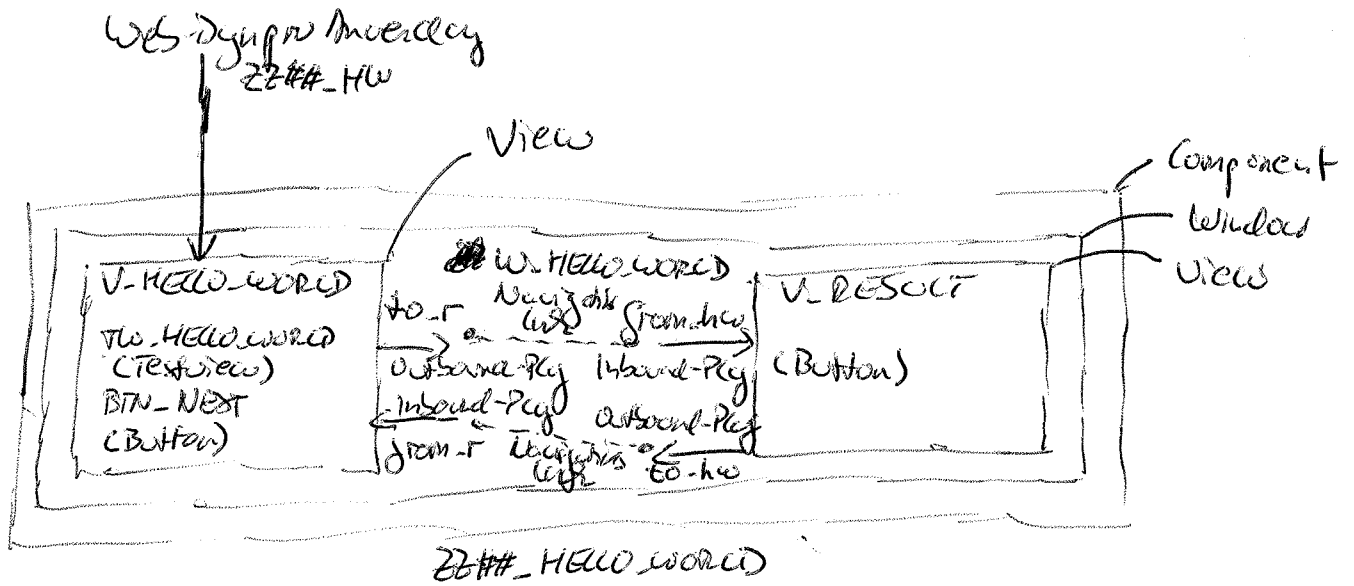 Web-Dynpro Anwendung
ZZ##_HW
View
Component
Window
View
W_HELLO_WORLD
V_HELLO_WORLD
TW_HELLO_WORLD
(Textview)
BTN_NEXT
(Button)
to_r
Navigations
link
from_hw
Outbound-Plug
Inbound-Plug
Inbound-Plug
Outbound-Plug
from_r
Navigations
link
to_hw
V_RESULT
(Button)
ZZ##_HELLO_WORLD